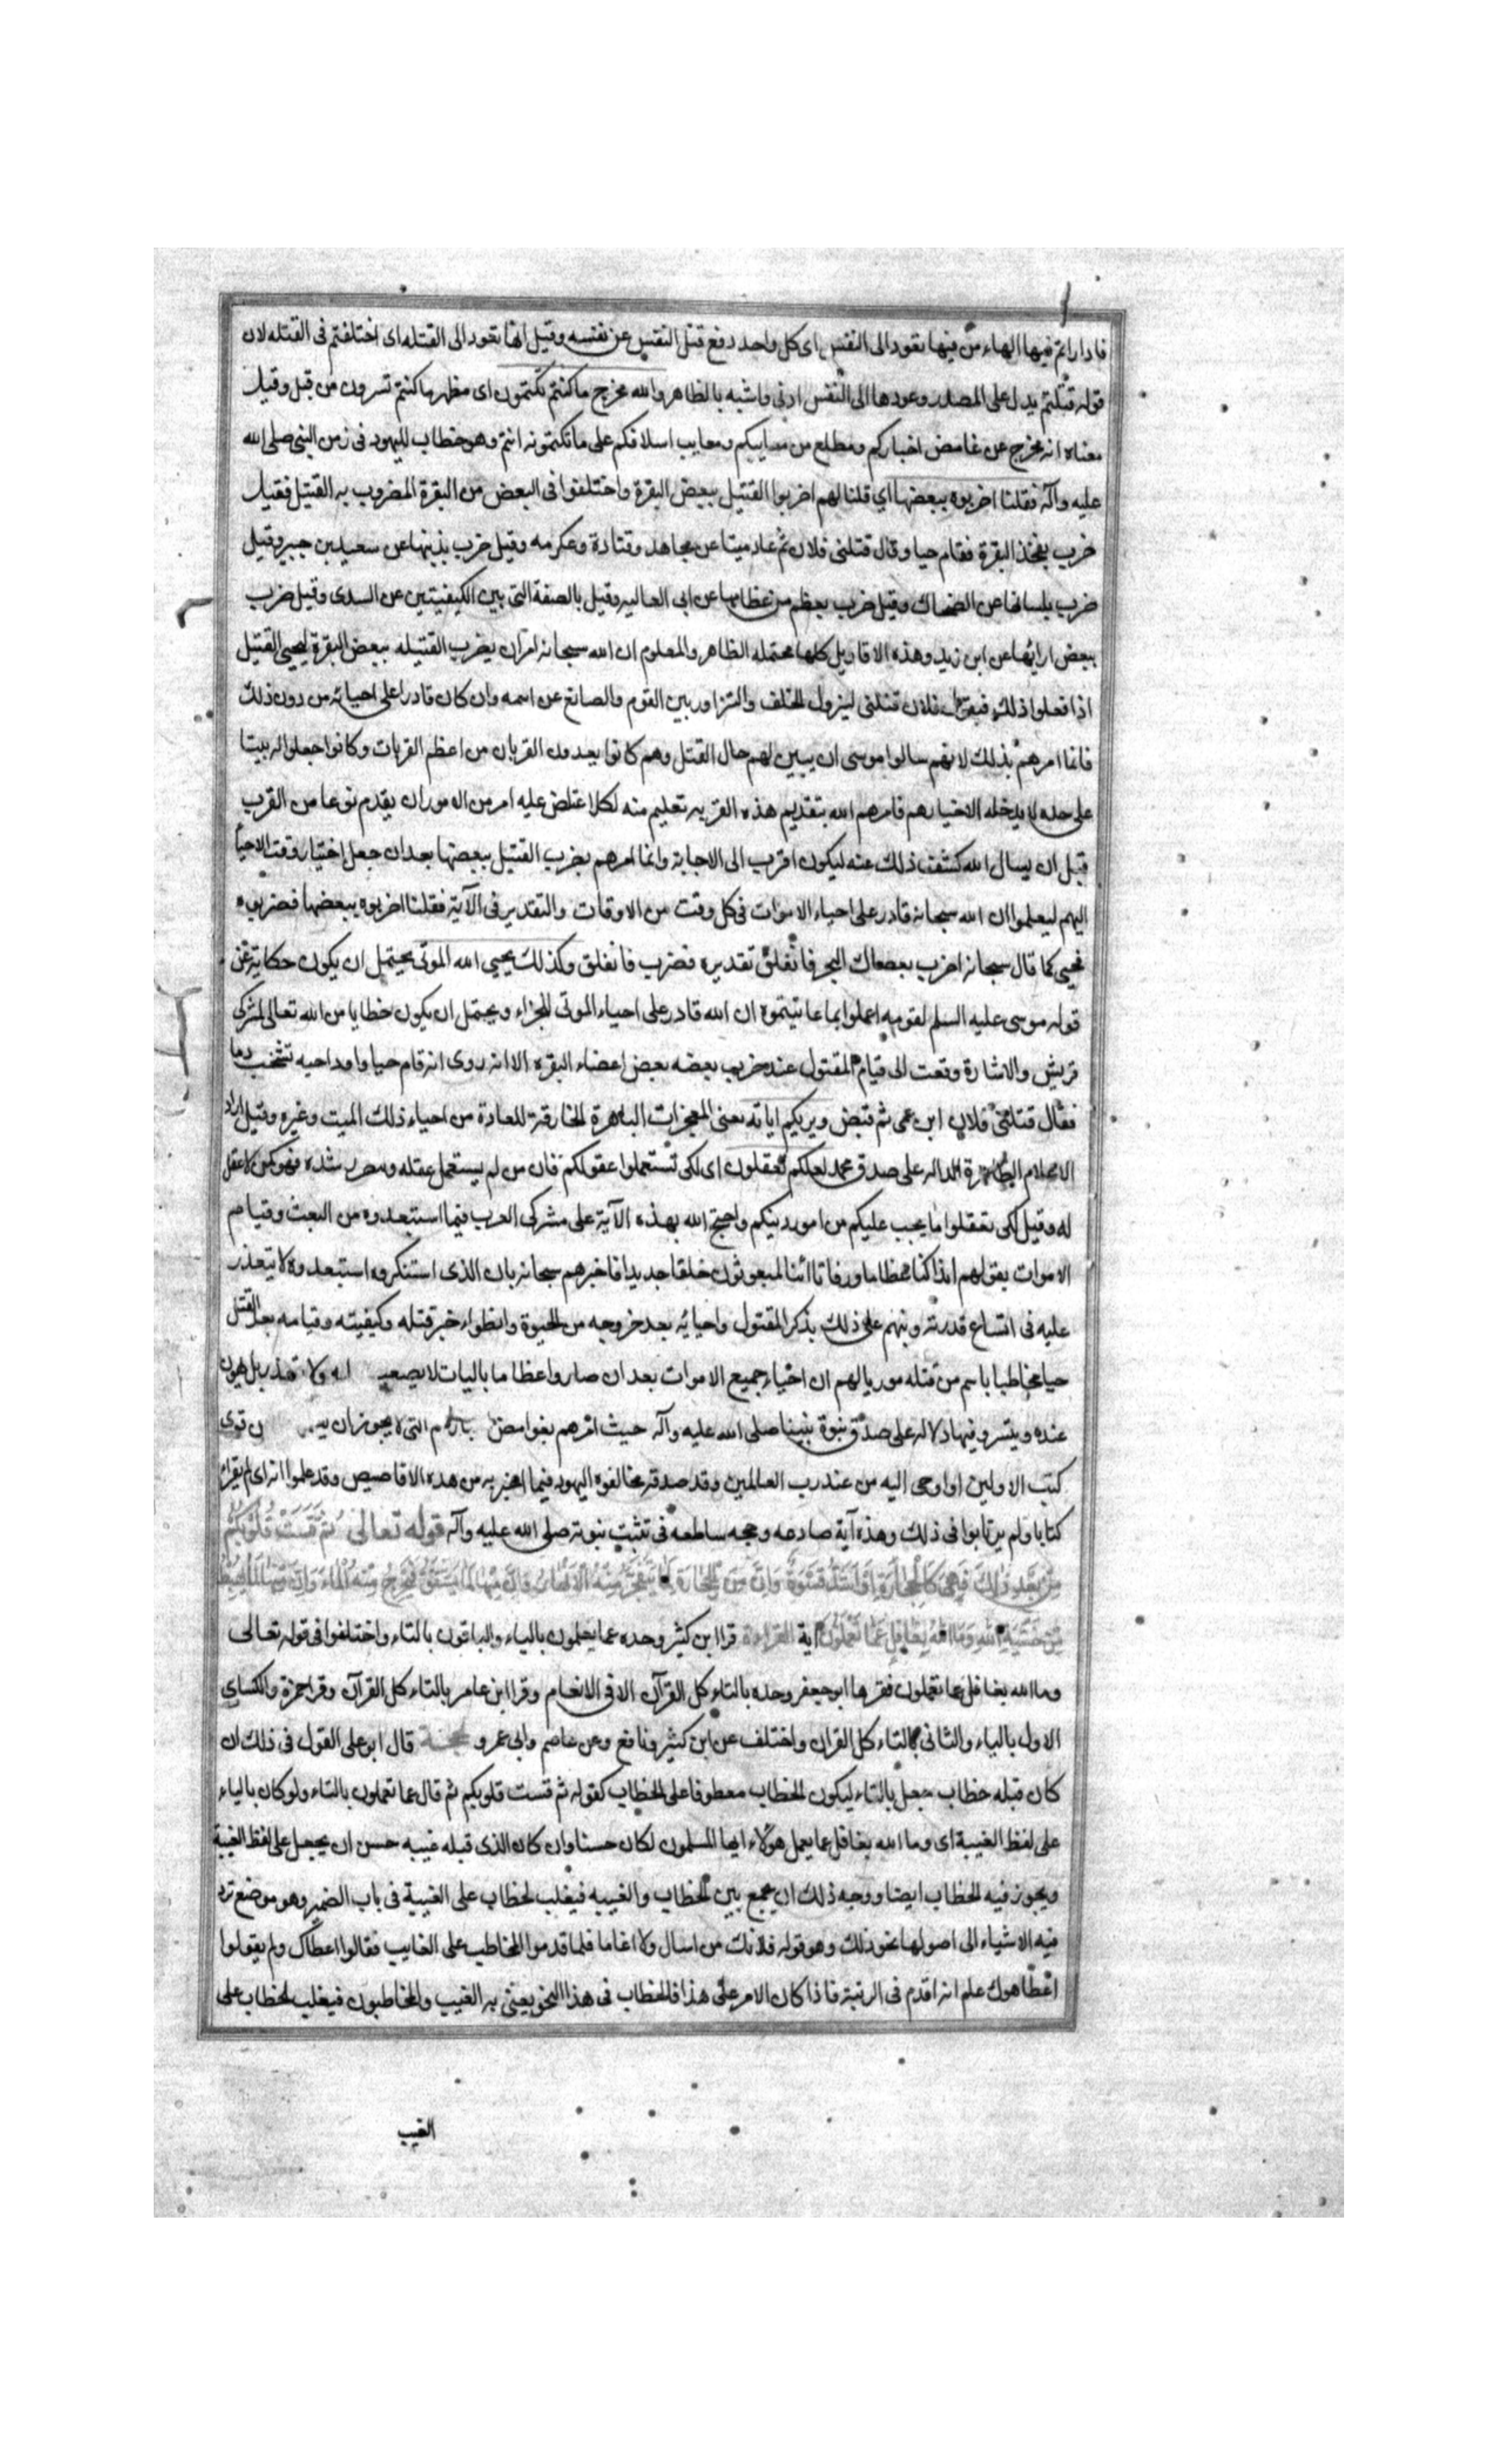 فادارأتم فيها الهاء من فيها يعود الى النفس اى كل واحد دفع قتل النفس عن نفسه وقيل انها تعود الى القتله اى اختلفتم فى القتله لان
قوله قتلتم يدل على المصدر وعودها الى النفس اولى واشبه بالظاهر والله مخرج ما كنتم تكتمون اى مظهر ما كنتم تسرون من قبل وقيل
معناه انه مخرج عن غامض اخباركم ومطلع من معايبكم ومعايب اسلافكم على ما تكتمونه انتم وهو خطاب لليهود فى زمن النبى صلى الله
عليه وآله فقلنا اضربوه ببعضها اي قلنا لهم اضربوا القتيل ببعض البقرة واختلفوا فى البعض من البقرة المضروب به القتيل فقيل
ضرب بفخذ البقرة فقام حيا وقال قتلنى فلان ثم عاد ميتا عن مجاهد وقتادة وعكرمه وقيل ضرب بذنبها عن سعيد بن جبير وقيل
ضرب بلسانها عن الضحاك وقيل ضرب بعظم من عظامها عن ابى العاليه وقيل بالبضعة التى بين الكتفيتين عن السدى وقيل ضرب
ببعض ارابها عن ابن زيد وهذه الاقاويل كلها محتمله الظاهر والمعلوم ان الله سبحانه امر ان يضرب القتيله ببعض البقرة ليحيى القتيل
اذا فعلوا ذلك فيقول فلان قتلنى ليزول الخلف والتزاور بين القوم والصانع عز اسمه وان كان قادرا على احيائه من دون ذلك
فانما امرهم بذلك لانهم سالوا موسى ان يبين لهم حال القتل وهم كانوا يعدون القربان من اعظم القربات وكانوا جعلوا له بيتا
على حده لا يدخله الا خيارهم فامرهم الله بتقديم هذه القربه تعليم منه لكل اعتاض عليه امر من الامور ان يقدم نوعا من القرب
قبل ان يسال الله كشف ذلك عنه ليكون اقرب الى الاجابة وانما امرهم بضرب القتيل ببعضها بعد ان جعل اختيار وقت الاحيا
اليهم ليعلموا ان الله سبحانه قادر على احياء الاموات فى كل وقت من الاوقات والتقدير فى الآية فقلنا اضربوه ببعضها فضربوه
فحيى كما قال سبحانه اضرب بعصاك البحر فانفلق تقديره فضرب فانفلق وكذلك يحيي الله الموتى يحتمل ان يكون حكاية عن
قوله موسى عليه السلم لقومه اعلموا بما عاينتموه ان الله قادر على احياء الموتى للجزاء ويحتمل ان يكون خطابا من الله تعالى لمشركى
قريش والاشارة وقعت الى قيام المقتول عند ضرب بعضه ببعض اعضاء البقره الا انه روى انه قام حيا واوداجه تشخب دما
فقال قتلنى فلان ابن عمى ثم قبض ويريكم اياته يعنى المعجزات الباهرة الخارقة للعادة من احياء ذلك الميت وغيره وقيل اراد
الاعلام الظاهرة الداله على صدق محمد لعلكم تعقلون اى لكى تستعملوا عقولكم فان من لم يستعمل عقله ولم يبصر رشده فهو كمن لا عقل
له وقيل لكى تعقلوا ما يجب عليكم من امور دينكم واحتج الله بهذه الآية على مشركى العرب فيما استبعدوه من البعث وقيام
الاموات بقولهم ائذا كنا عظاما ورفاتا ائنا لمبعوثون خلقا جديدا فاخبرهم سبحانه بان الذى استنكروه واستبعدوه لا يتعذر
عليه فى اتساع قدرته ونبههم على ذلك بذكر المقتول واحيائه بعد خروجه من الحيوة وانطواء خبر قتله وكيفيته وقيامه بعد القتل
حيا مخاطبا باسم من قتله موريا لهم ان احياء جميع الاموات بعد ان صاروا عظاما باليات لا يصعب ولا يتعذر بل يهون
عنده ويتسر وفيها دلاله على صدق نبوة نبينا صلى الله عليه وآله حيث اخبرهم بغوامض التى لا يجوز ان قوى
كتب الاولين او اوحى اليه من عند رب العالمين وقد صدقه مخالفوه اليهود فيما اخبر به من هذه الاقاصيص وقد علموا انه امى لم يقراء
كتابا ولم يرتابوا فى ذلك وهذه آية صادعه وحجه ساطعه فى تثبيت نبوته صلى الله عليه وآله قوله تعالى ثُمَّ قَسَتْ قُلُوبُكُمْ
مِنْ بَعْدِ ذَلِكَ فَهِىَ كَالْحِجَارَةِ اَوْ اَشَدُّ قَسْوَةً وَاِنَّ مِنَ الْحِجَارَةِ لَمَا يَتَفَجَّرُ مِنْهُ الْاَنْهَارُ وَاِنَّ مِنْهَا لَمَا يَشَّقَّقُ فَيَخْرُجُ مِنْهُ الْمَاءُ وَاِنَّ مِنْهَا لَمَا يَهْبِطُ
مِنْ خَشْيَةِ اللهِ وَمَا اللهُ بِغَافِلٍ عَمَّا تَعْمَلُونَ اية القراءة قرا ابن كثير وحده عما يعملون بالياء والباقون بالتاء واختلفوا فى قوله تعالى
وما الله بغافل عما تعملون فقرها ابو جعفر وحده بالتاء كل القرآن الا فى الانعام وقرا ابن عامر بالتاء كل القرآن وقرا حمزة والكساى
الاول بالياء والثانى بالتاء كل القران واختلف عن ابن كثير ونافع وعن عاصم وابى عمرو حجة قال ابو على القول فى ذلك ان
كان قبله خطاب جعل بالتاء ليكون الخطاب معطوفا على الخطاب كقوله ثم قست قلوبكم ثم قال عما تعملون بالتاء ولو كان بالياء
على لفظ الغيبة اى وما الله بغافل عما يعمل هؤلاء ايها المسلمون لكان حسنا وان كان الذى قبله غيبه حسن ان يجعل على لفظ الغيبة
ويجوز فيه الخطاب ايضا ووجه ذلك ان يجمع بين الخطاب والغيبه فيغلب الخطاب على الغيبة فى باب الضمير وهو موضع ترد
فيه الاشياء الى اصولها نحو ذلك وهو قوله فلا بك من اسال ولا اغاما فلما قدموا المخاطب على الغايب فقالوا اعطاك ولم يقولوا
اعطاهوك علم انه اقدم فى الرتبة فاذا كان الامر على هذا فالخطاب فى هذا النحو يعنى به الغيب والمخاطبون فيغلب الخطاب على
الغيب